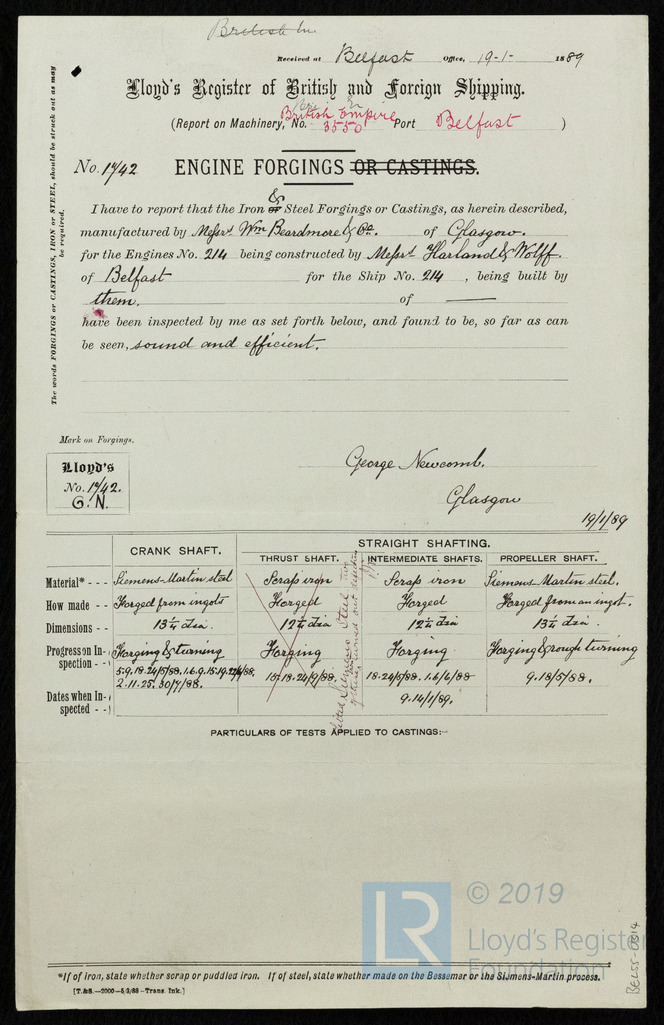 British Em
Received at Belfast Office, 19-1- 1889
Lloyd's Register of British and Foreign Shipping.
British Empire
(Report on Machinery, No. 3550 Port Belfast )
No. 1742 ENGINE FORGINGS OR CASTINGS.
&
I have to report that the Iron or Steel Forgings or Castings, as herein described,
manufactured by Messrs Wm Beardmore & Co. of Glasgow.
for the Engines No. 214 being constructed by Messrs Harland & Wolff
of Belfast for the Ship No. 214, being built by
them. of —
have been inspected by me as set forth below, and found to be, so far as can
be seen, sound and efficient.
The words FORGINGS or CASTINGS, IRON or STEEL, should be struck out as may
be required.
Mark on Forgings.
Lloyd's
No. 1742.
G.N.
George Newcomb.
Glasgow
19/1/89
CRANK SHAFT. STRAIGHT SHAFTING.
THRUST SHAFT. INTERMEDIATE SHAFTS. PROPELLER SHAFT.
Material* - - - Siemens-Martin steel Scrap iron Scrap iron Siemens-Martin steel.
How made - - Forged from ingots Forged Forged Forged from an ingot.
Dimensions - - 13¼ dia. 12¼ dia 12¼ dia 13¼ dia.
Progress on In-
spection - - Forging & turning Forging Forging Forging & rough turning
Dates when In-
spected - - 5.9.18.24/5/88. 1.6.9.15.19.22/6/88.
2.11.25.30/7/88.
15.18.24/9/88. 18.24/5/88. 1.6/6/88
9.14/1/89.
9.18/5/88.
PARTICULARS OF TESTS APPLIED TO CASTINGS:—
*If of iron, state whether scrap or puddled iron. If of steel, state whether made on the Bessemer or the Siemens-Martin process.
[T.&S.—2000—5/3/88—Trans. Ink.]
LR
© 2019
Lloyd's Register
Foundation
BEL55-0314